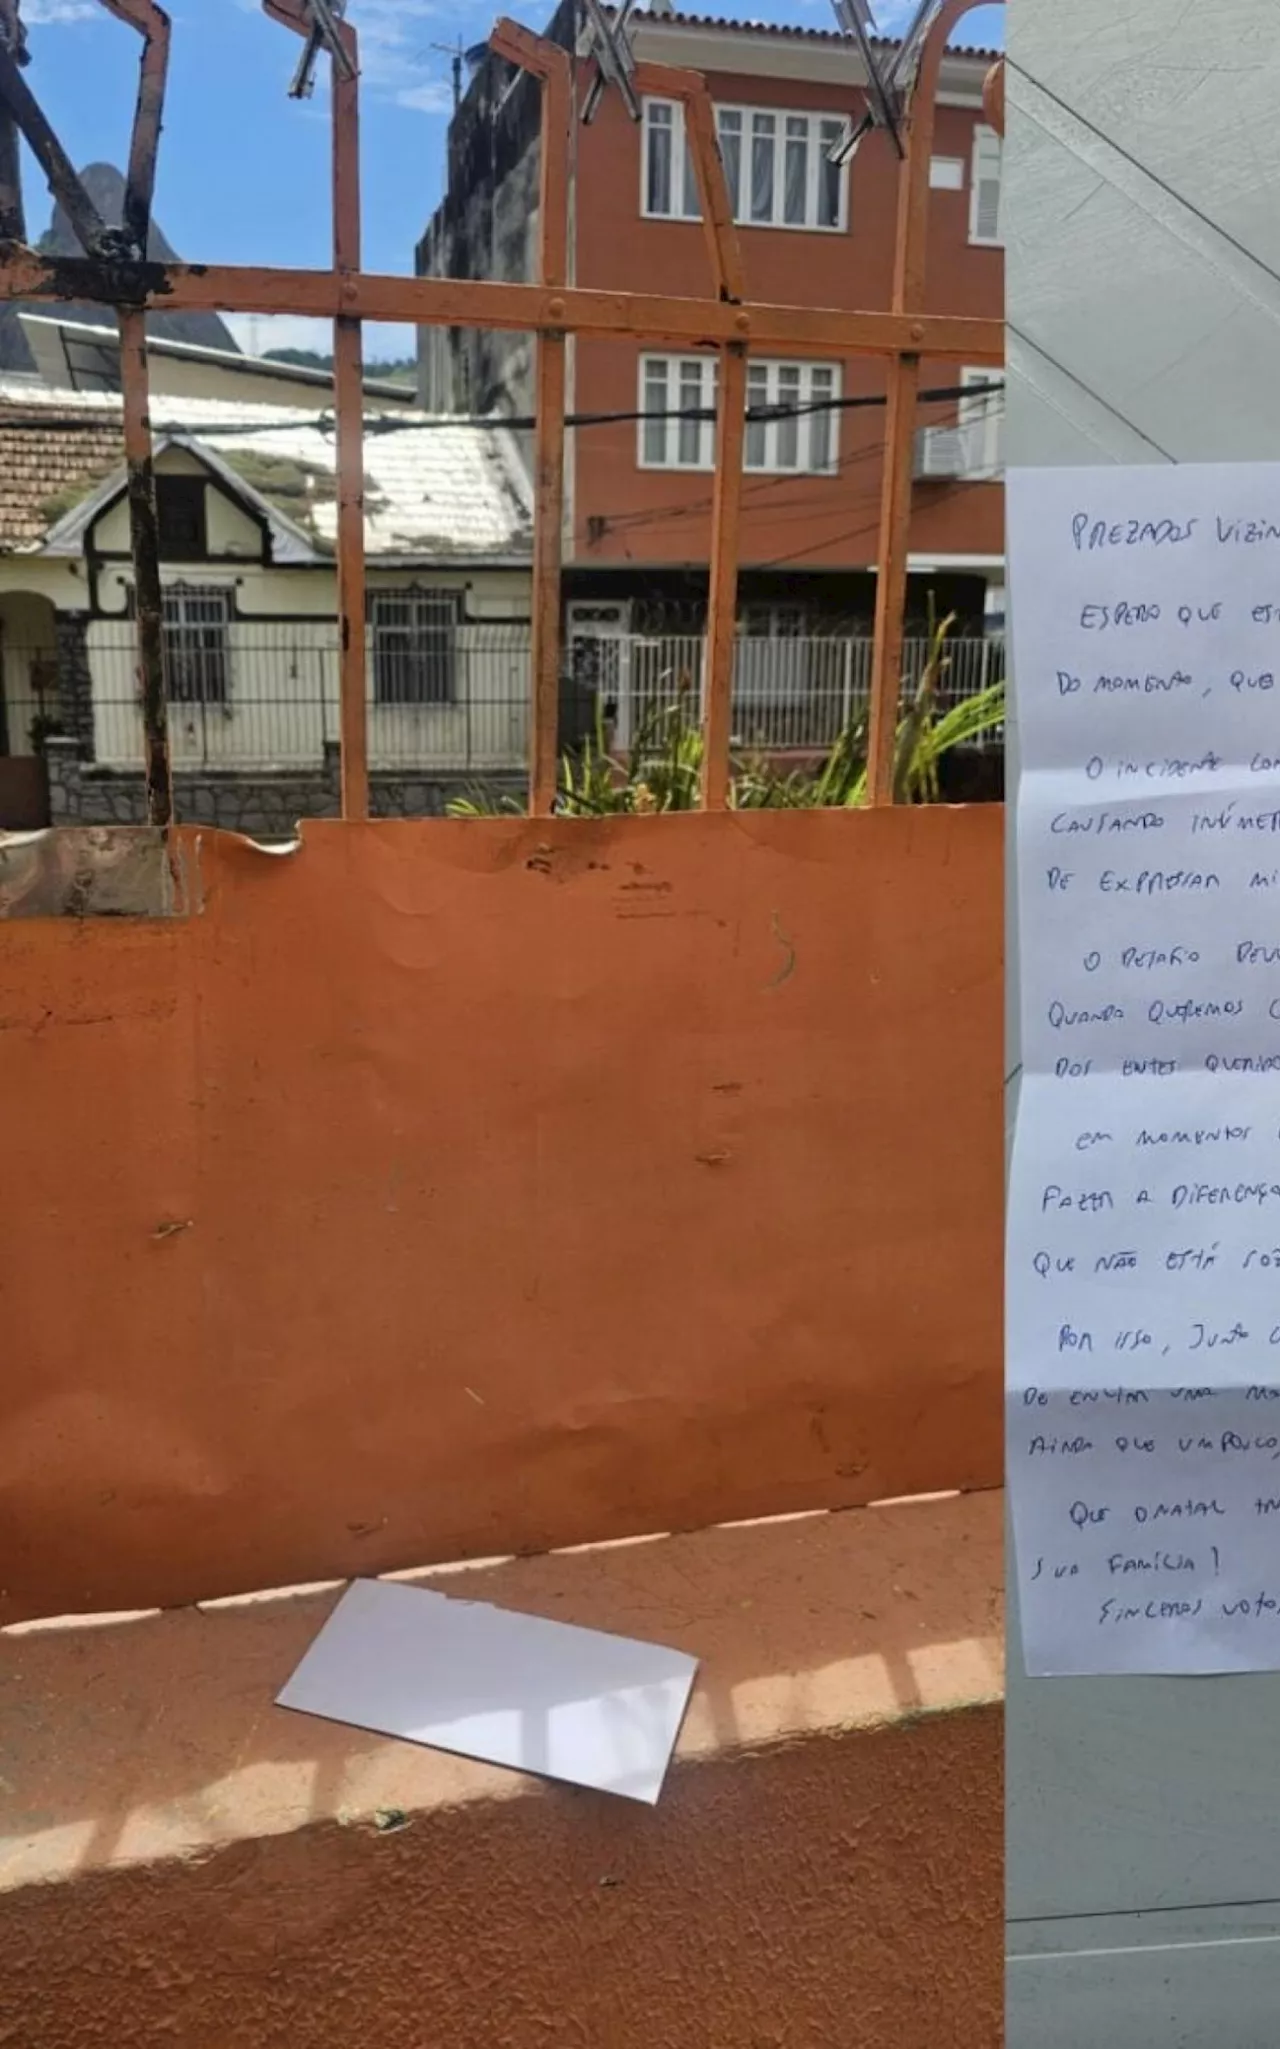 PREZADOS VIZIN
ESPERO QUE EST
DO MOMENTO, QUE
O INCIDENTE COM
CAUSANDO INÚMER
DE EXPRESSAR MI
O DESAFIO DEVE
QUANDO QUEREMOS C
DOS ENTES QUERIDO
EM MOMENTOS
FAZER A DIFERENÇA
QUE NÃO ESTÁ SOZ
POR ISSO, JUNTO C
DE ENVIAR UMA MA
AINDA QUE UM POUCO,
QUE O NATAL TR
SUA FAMÍLIA!
SINCEROS VOTOS